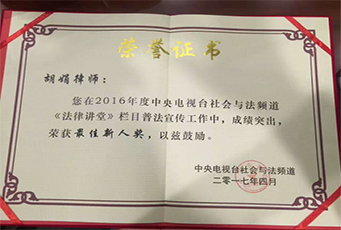 荣誉证书
胡娟律师：
您在2016年度中央电视台社会与法频道
《法律讲堂》栏目普法宣传工作中，成绩突出，
荣获最佳新人奖，以兹鼓励。
中央电视台社会与法频道
二零一七年四月